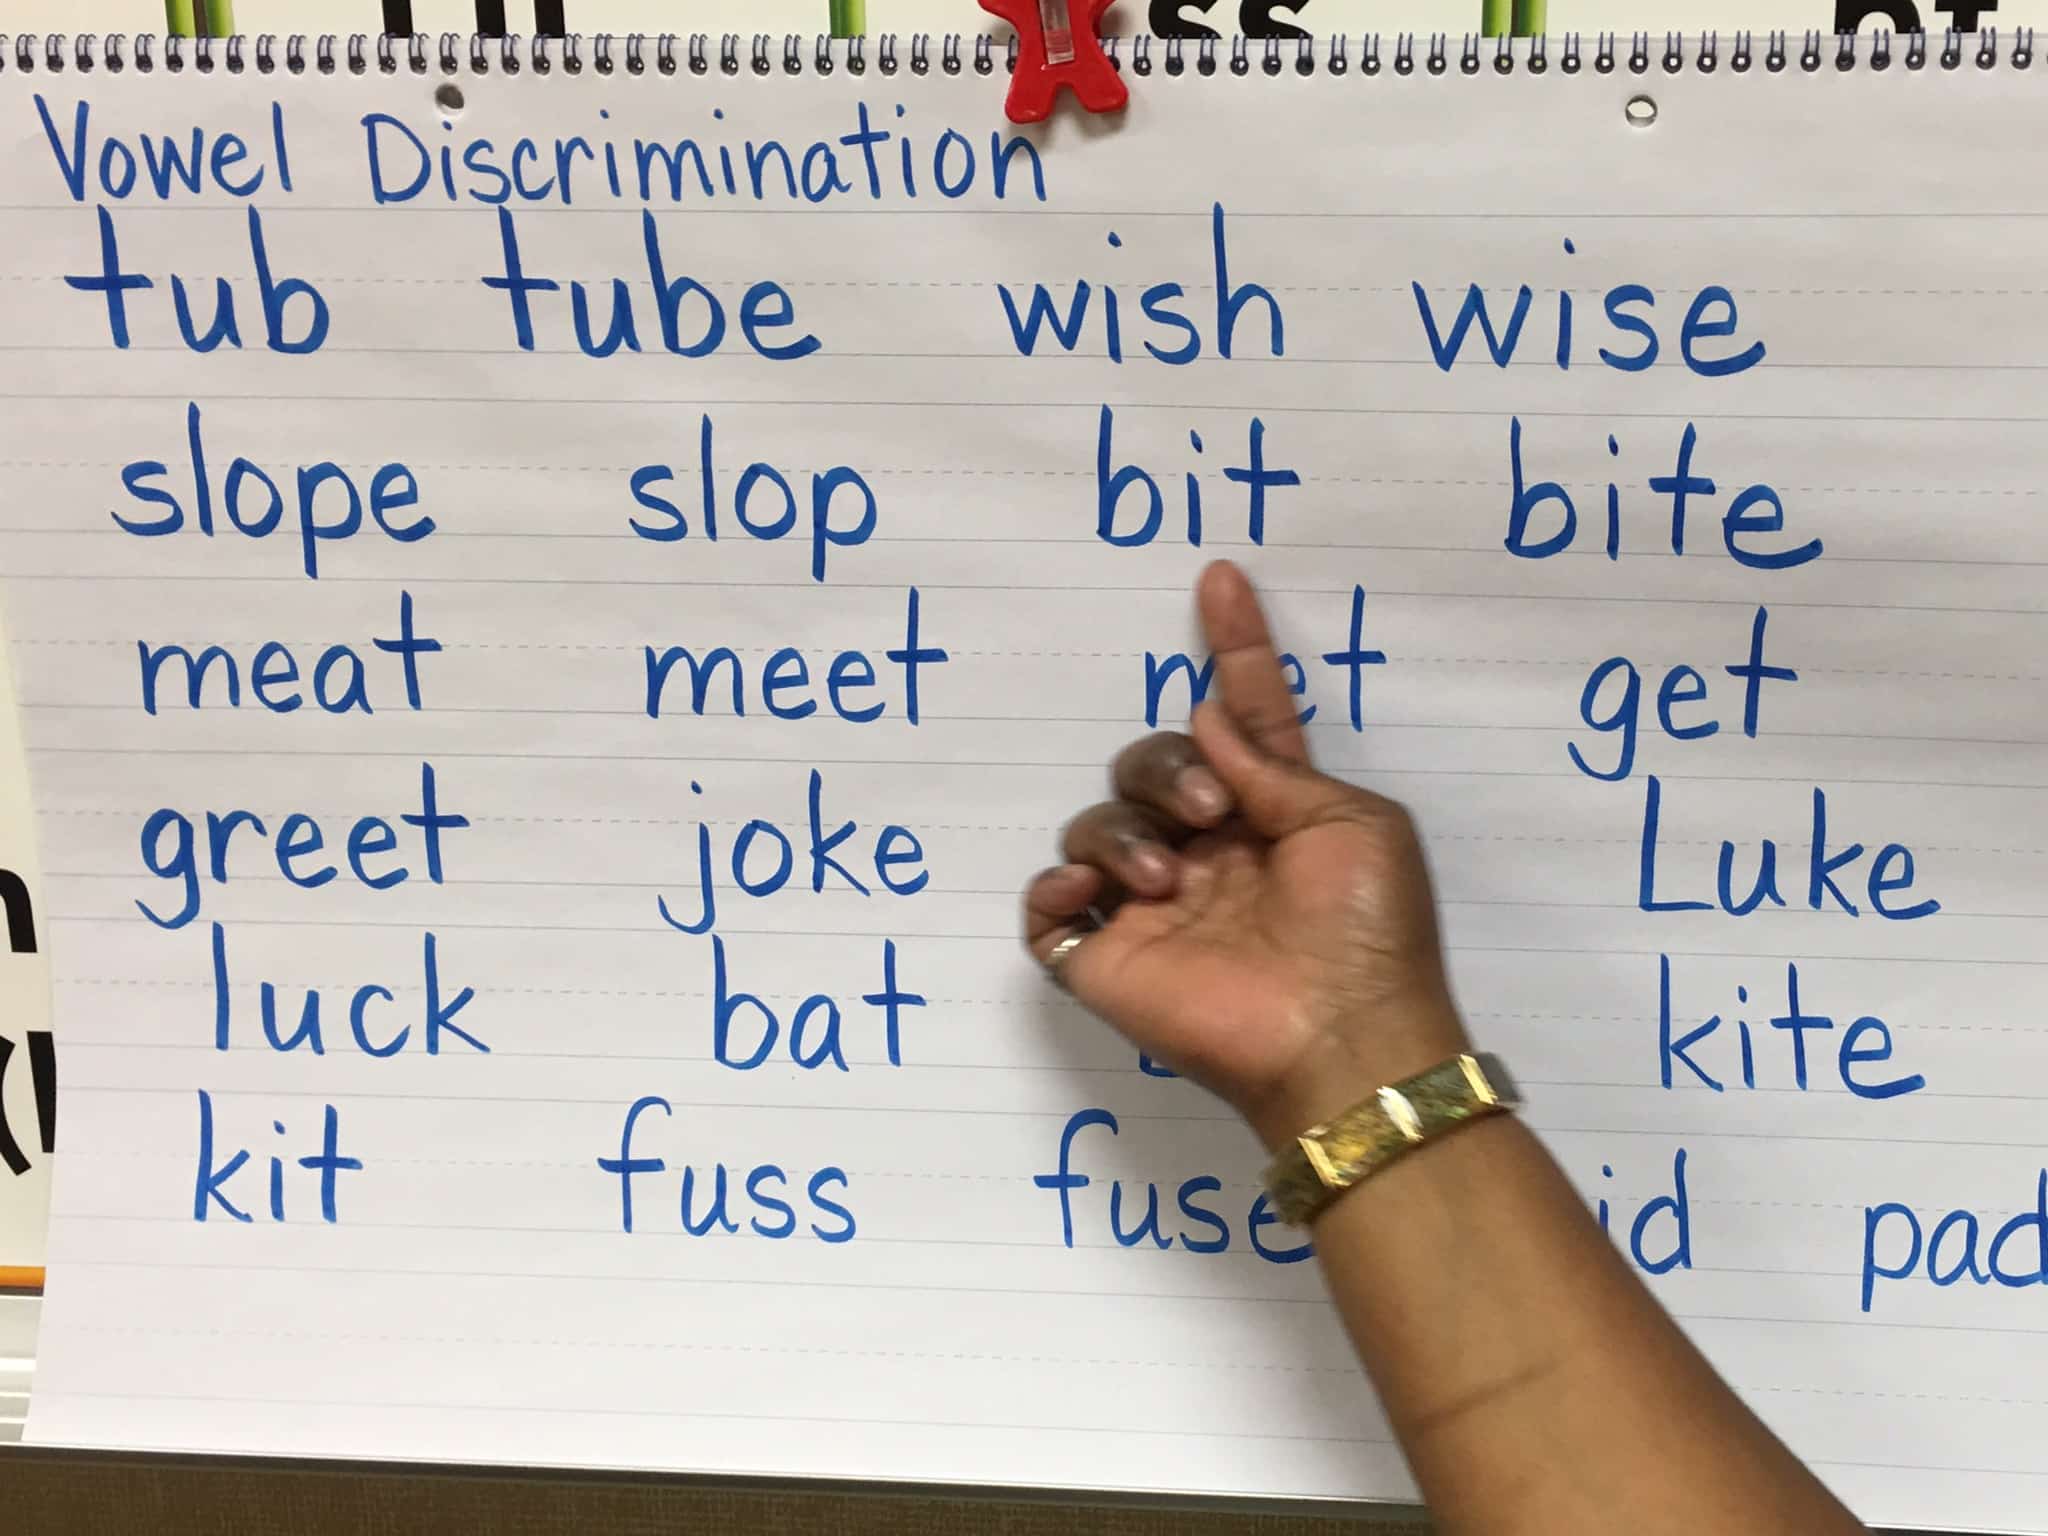 Vowel Discrimination
tub tube wish wise
slope slop bit bite
meat meet met get
greet joke Luke
luck bat kite
kit fuss fuse pad